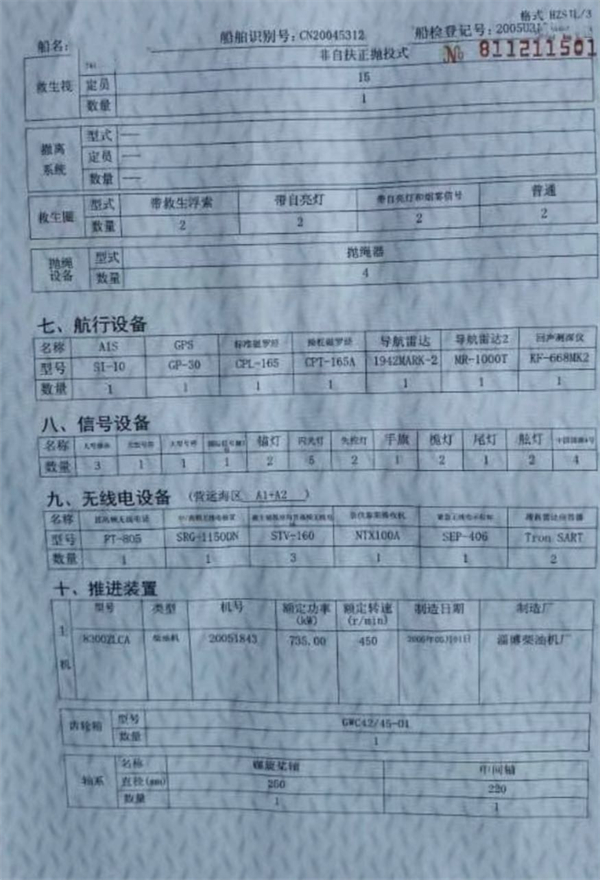 格式 HZS1L/3
船名: 船舶识别号: CN20045312 船检登记号: 2005031
№ 811211501
非自扶正抛投式
救生筏 定员 15
数量 1
撤离系统 型式 ——
定员 ——
数量 ——
救生圈 型式 带救生浮索 带自亮灯 带自亮灯和烟雾信号 普通
数量 2 2 2 2
抛绳设备 型式 抛绳器
数量 4
七、航行设备
名称 AIS GPS 标准磁罗经 操舵磁罗经 导航雷达 导航雷达2 回声测深仪
型号 SI-10 GP-30 CPL-165 CPT-165A 1942MARK-2 MR-1000T KF-668MK2
数量 1 1 1 1 1 1 1
八、信号设备
名称 锚灯 闪光灯 失控灯 手旗 桅灯 尾灯 舷灯
数量 3 1 1 1 2 5 2 1 2 1 2 4
九、无线电设备 (营运海区 A1+A2 )
名称 搜救雷达应答器
型号 FT-805 SRG-1150DN STV-160 NTX100A SEP-406 Tron SART
数量 1 1 3 1 1 2
十、推进装置
型号 类型 机号 额定功率(kW) 额定转速(r/min) 制造日期 制造厂
主机 8300ZLCA 柴油机 20051843 735.00 450 淄博柴油机厂
齿轮箱 型号 GWC42/45-01
数量 1
轴系 名称 螺旋桨轴 中间轴
直径(mm) 250 220
数量 1 1